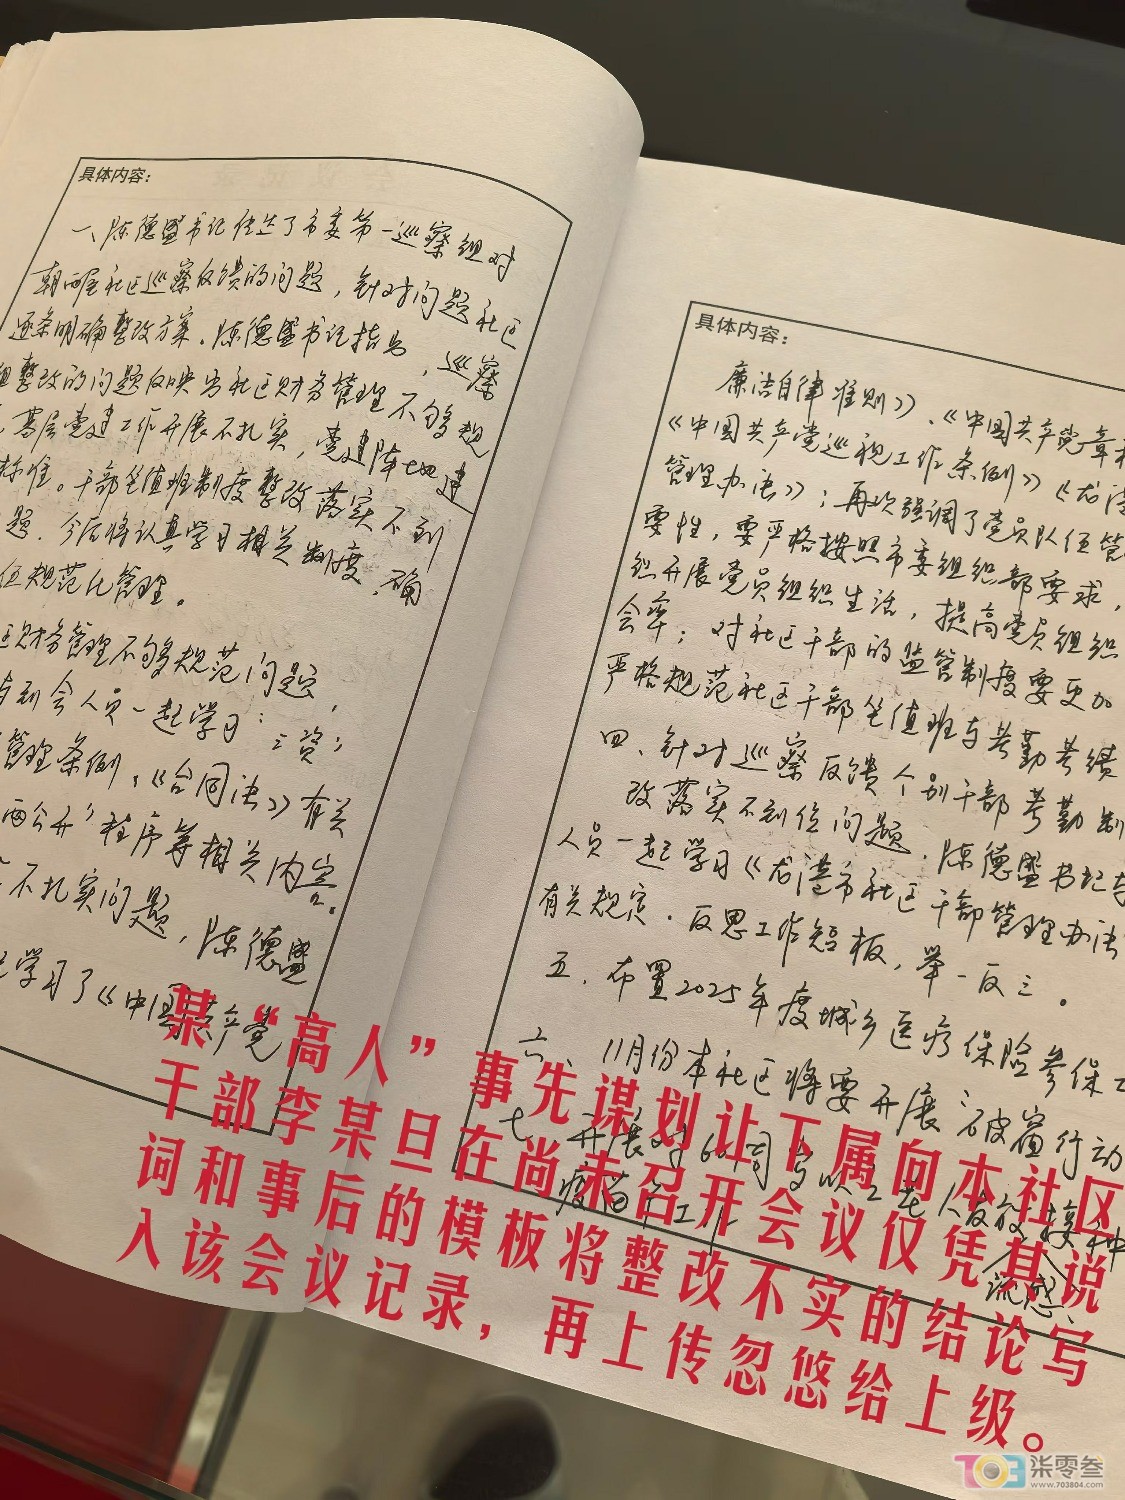 具体内容：
一、陈德盛书记传达了市委第一巡察组对
朝西屋社区巡察反馈的问题，针对问题社区
逐条明确整改方案。陈德盛书记指出，巡察
组整改的问题反映出社区财务管理不够规
基层党建工作开展不扎实，党建阵地建
标准。干部坐值班制度整改落实不到
题。今后将认真学习相关制度，确
位规范化管理。
区财务管理不够规范问题，
与到会人员一起学习：三资；
管理条例，《合同法》有关
两公开’程序等相关内容。
不扎实问题，陈德盛
学习了《中国共产党
具体内容：
廉洁自律准则》、《中国共产党章程
《中国共产党巡视工作条例》《龙港
管理办法》；再次强调了党员队伍管
要性，要严格按照市委组织部要求，
织开展党员组织生活，提高党员组织
会率；对社区干部的监管制度要更加
严格规范社区干部坐值班与考勤考绩
四、针对巡察反馈个别干部考勤制
改落实不到位问题，陈德盛书记与
人员一起学习《龙港市社区干部管理办法
有关规定，反思工作短板，举一反三。
五、布置2025年度城乡医疗保险参保
六、11月份本社区将要开展‘破窗行动
七、开展对60周岁以上老人及校接种
流感
疫苗工作
某“高人”事先谋划让下属向本社区
干部李某旦在尚未召开会议仅凭其说
词和事后的模板将整改不实的结论写
入该会议记录，再上传忽悠给上级。
703 柒零叁
www.703804.com